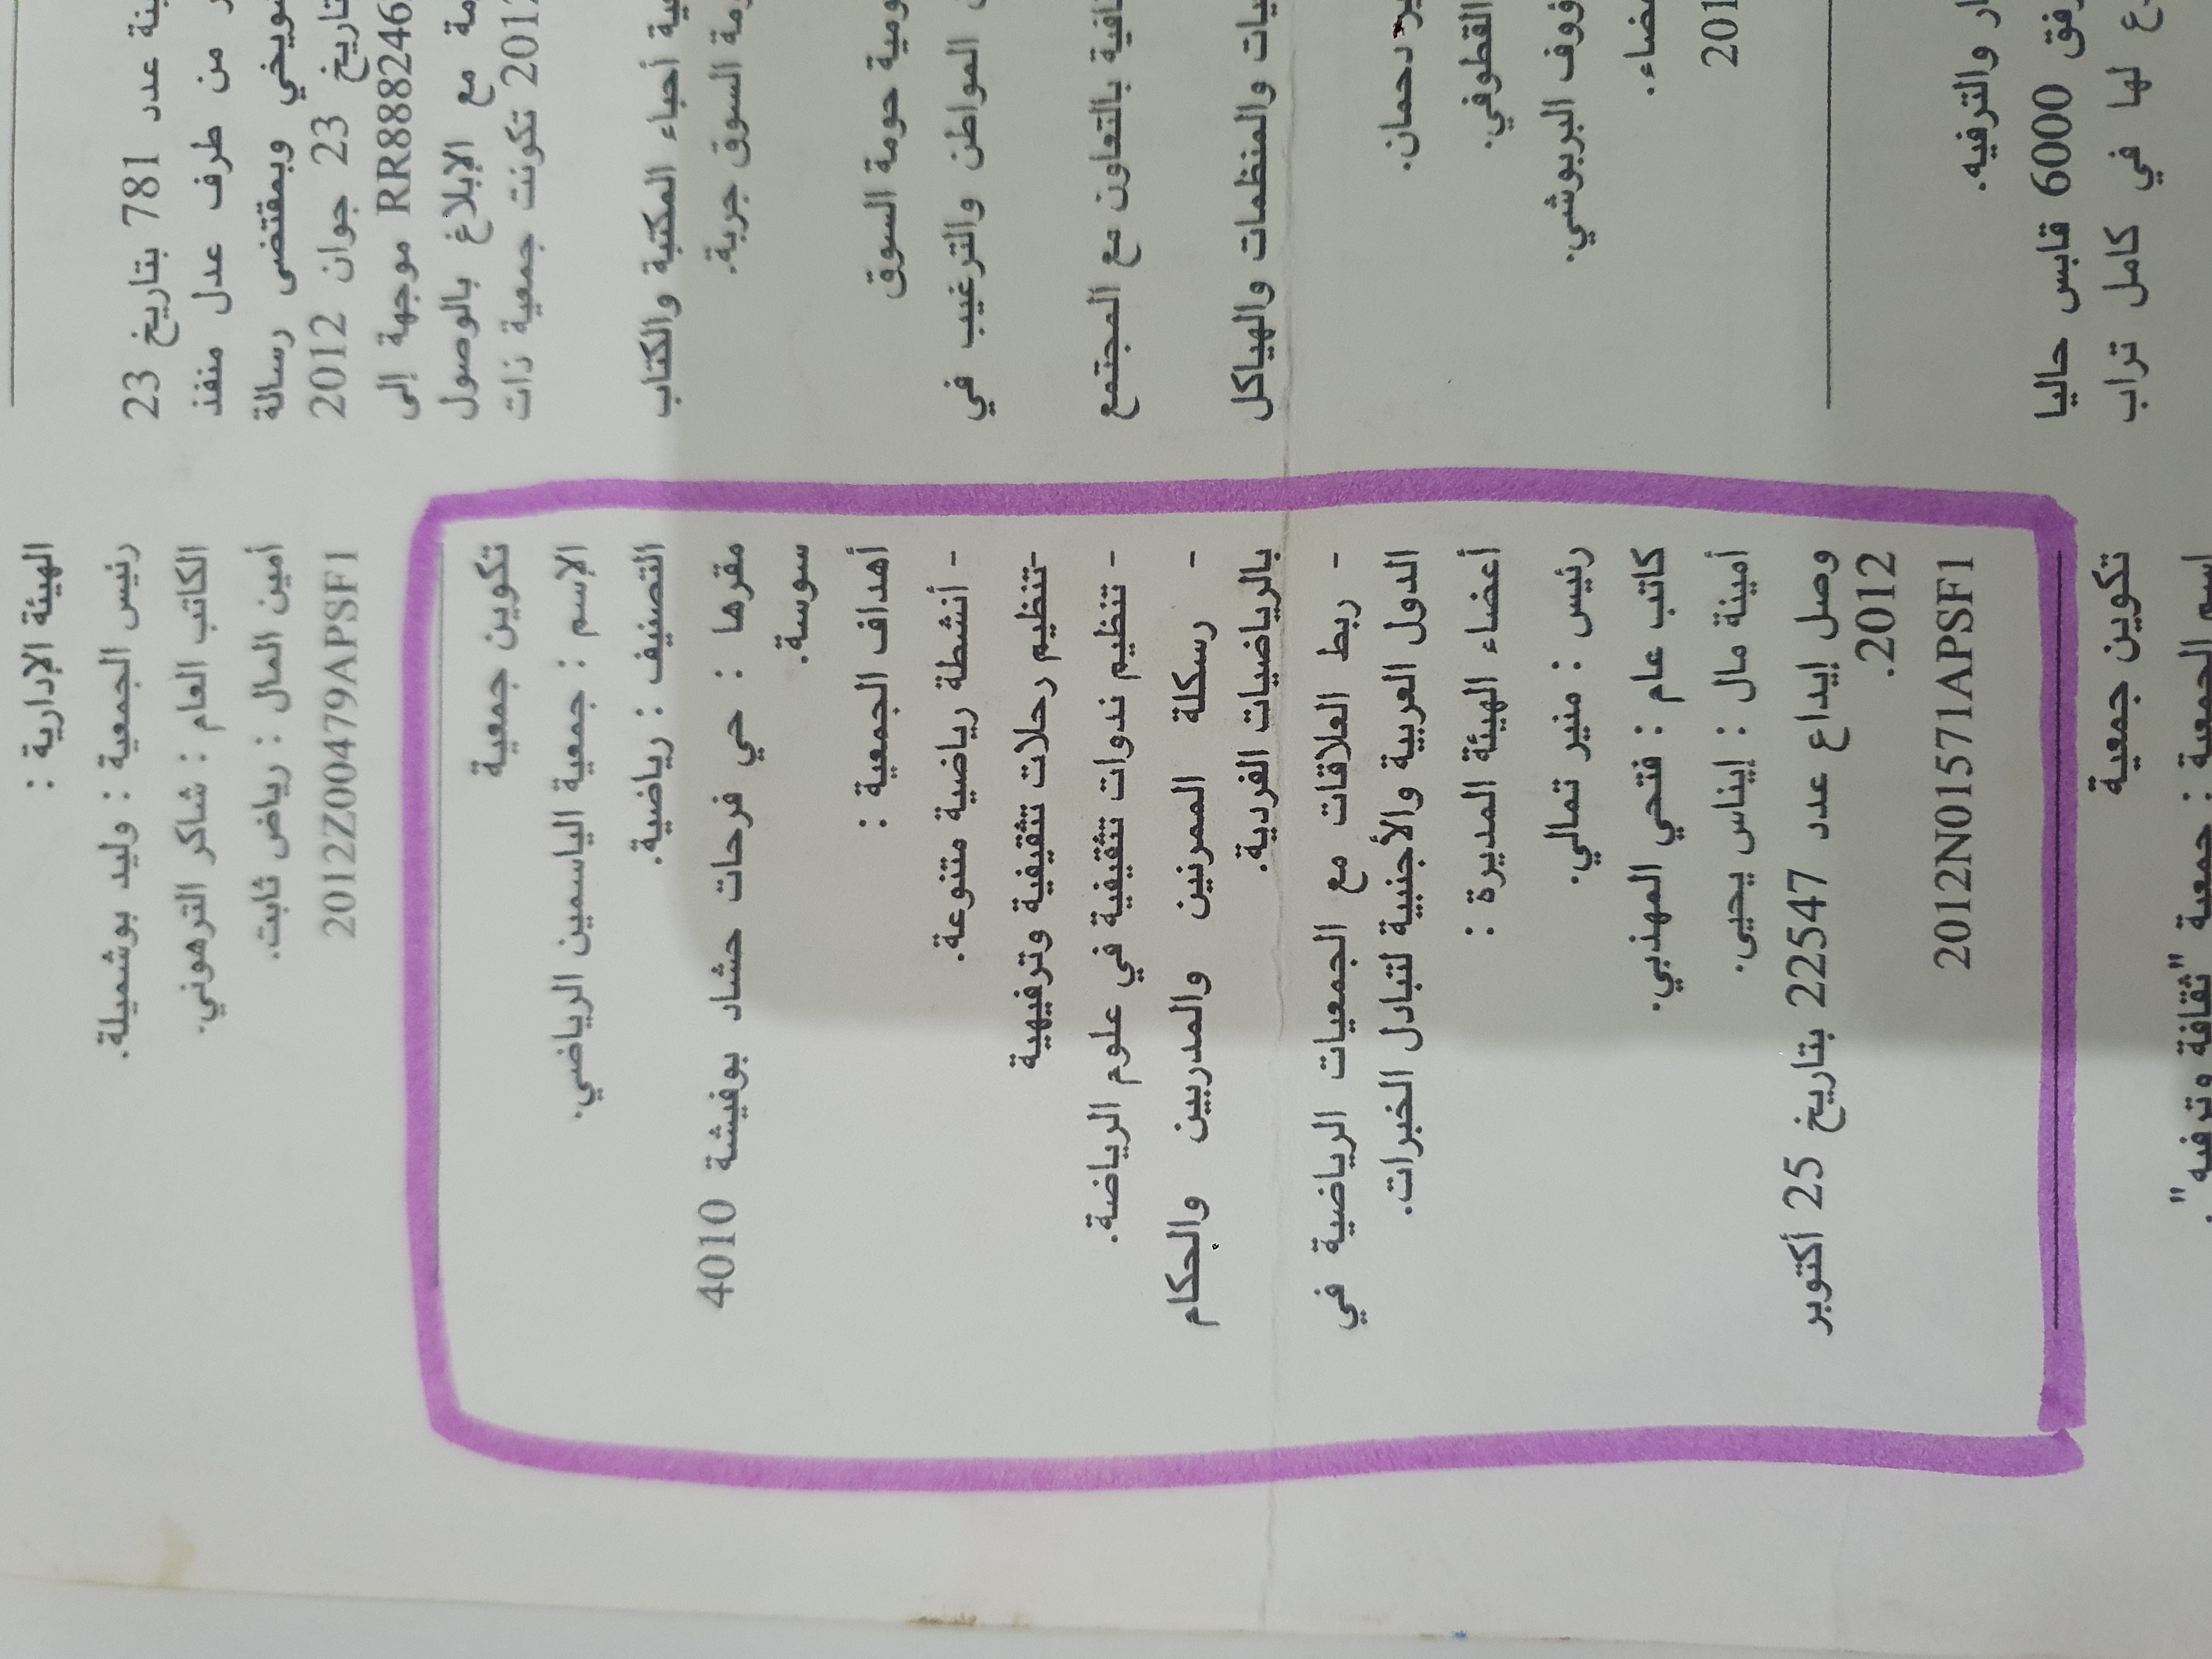 الهيئة الإدارية :
رئيس الجمعية : وليد بوشميلة.
الكاتب العام : شاكر الترهوني.
أمين المال : رياض ثابت.
2012Z00479APSF1
تكوين جمعية
الإسم : جمعية الياسمين الرياضي.
التصنيف : رياضية.
مقرها : حي فرحات حشاد بوفيشة 4010
سوسة.
أهداف الجمعية :
- أنشطة رياضية متنوعة.
-تنظيم رحلات تثقيفية وترفيهية
- تنظيم ندوات تثقيفية في علوم الرياضة.
- رسكلة الممرنين والمدربين والحكام
بالرياضيات الفردية.
- ربط العلاقات مع الجمعيات الرياضية في
الدول العربية والأجنبية لتبادل الخبرات.
أعضاء الهيئة المديرة :
رئيس : منير تمالي.
كاتب عام : فتحي المهذبي.
أمينة مال : إيناس يحيى.
وصل إيداع عدد 22547 بتاريخ 25 أكتوبر
2012.
2012N01571APSF1
تكوين جمعية
اسم الجمعية : جمعية "ثقافة وترفيه".
عدد 781 بتاريخ 23
من طرف عدل منفذ
وبمقتضى رسالة
23 جوان 2012
RR888246 موجهة إلى
مع الإبلاغ بالوصول
2012 تكونت جمعية ذات
أحباء المكتبة والكتاب
السوق جربة.
حومة السوق
المواطن والترغيب في
بالتعاون مع المجتمع
والمنظمات والهياكل
دحمان.
القطوفي.
البربوشي.
201
والترفيه.
6000 قابس حاليا
لها في كامل تراب